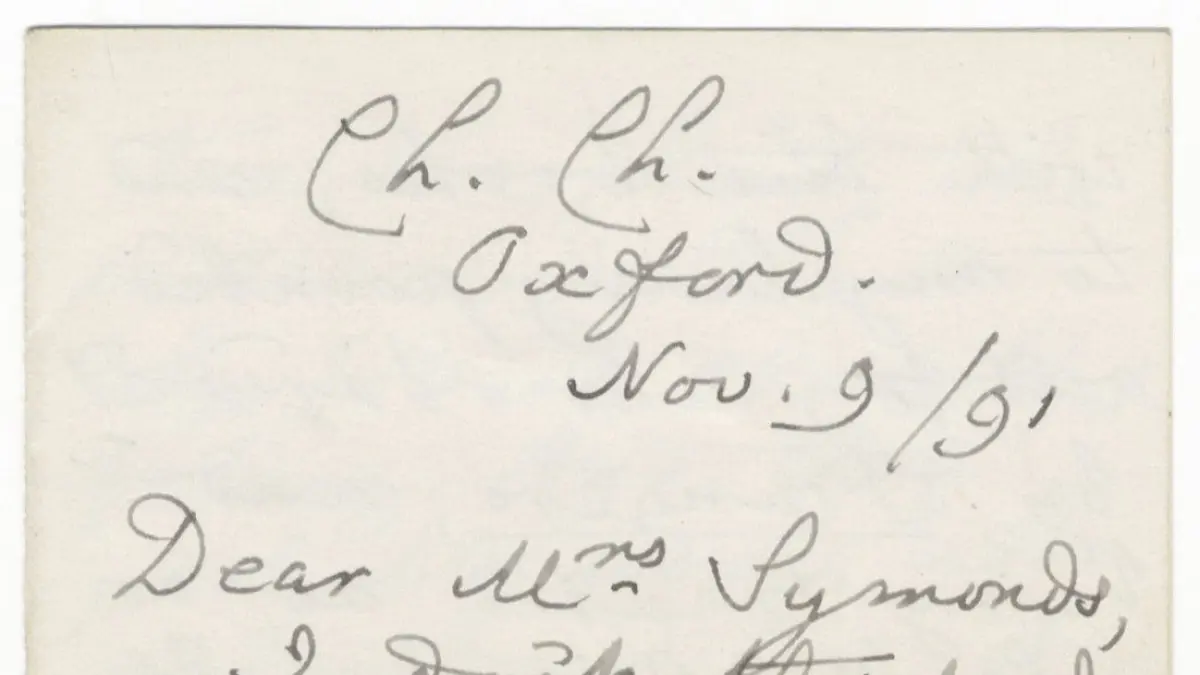 Ch. Ch.
Oxford.
Nov. 9/91
Dear Mrs Symonds,
I